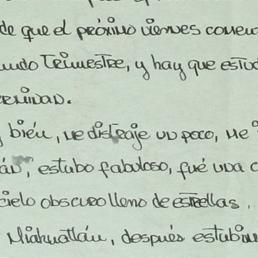 de que el próximo viernes comen
undo trimestre, y hay que estud
terminar.
y bien, me distraje un poco, me
án, estubo fabuloso, fué una
cielo obscuro lleno de estrellas.
Miahuatlán, después estubim